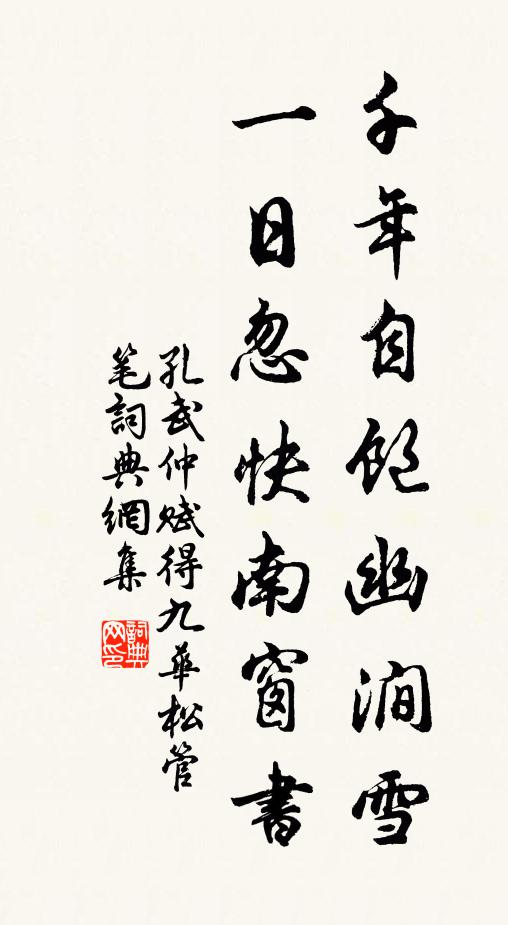 千年自飽幽澗雪
一日忽快南窗書
孔武仲賦得九華松管
笔詞典網集
詞典网印